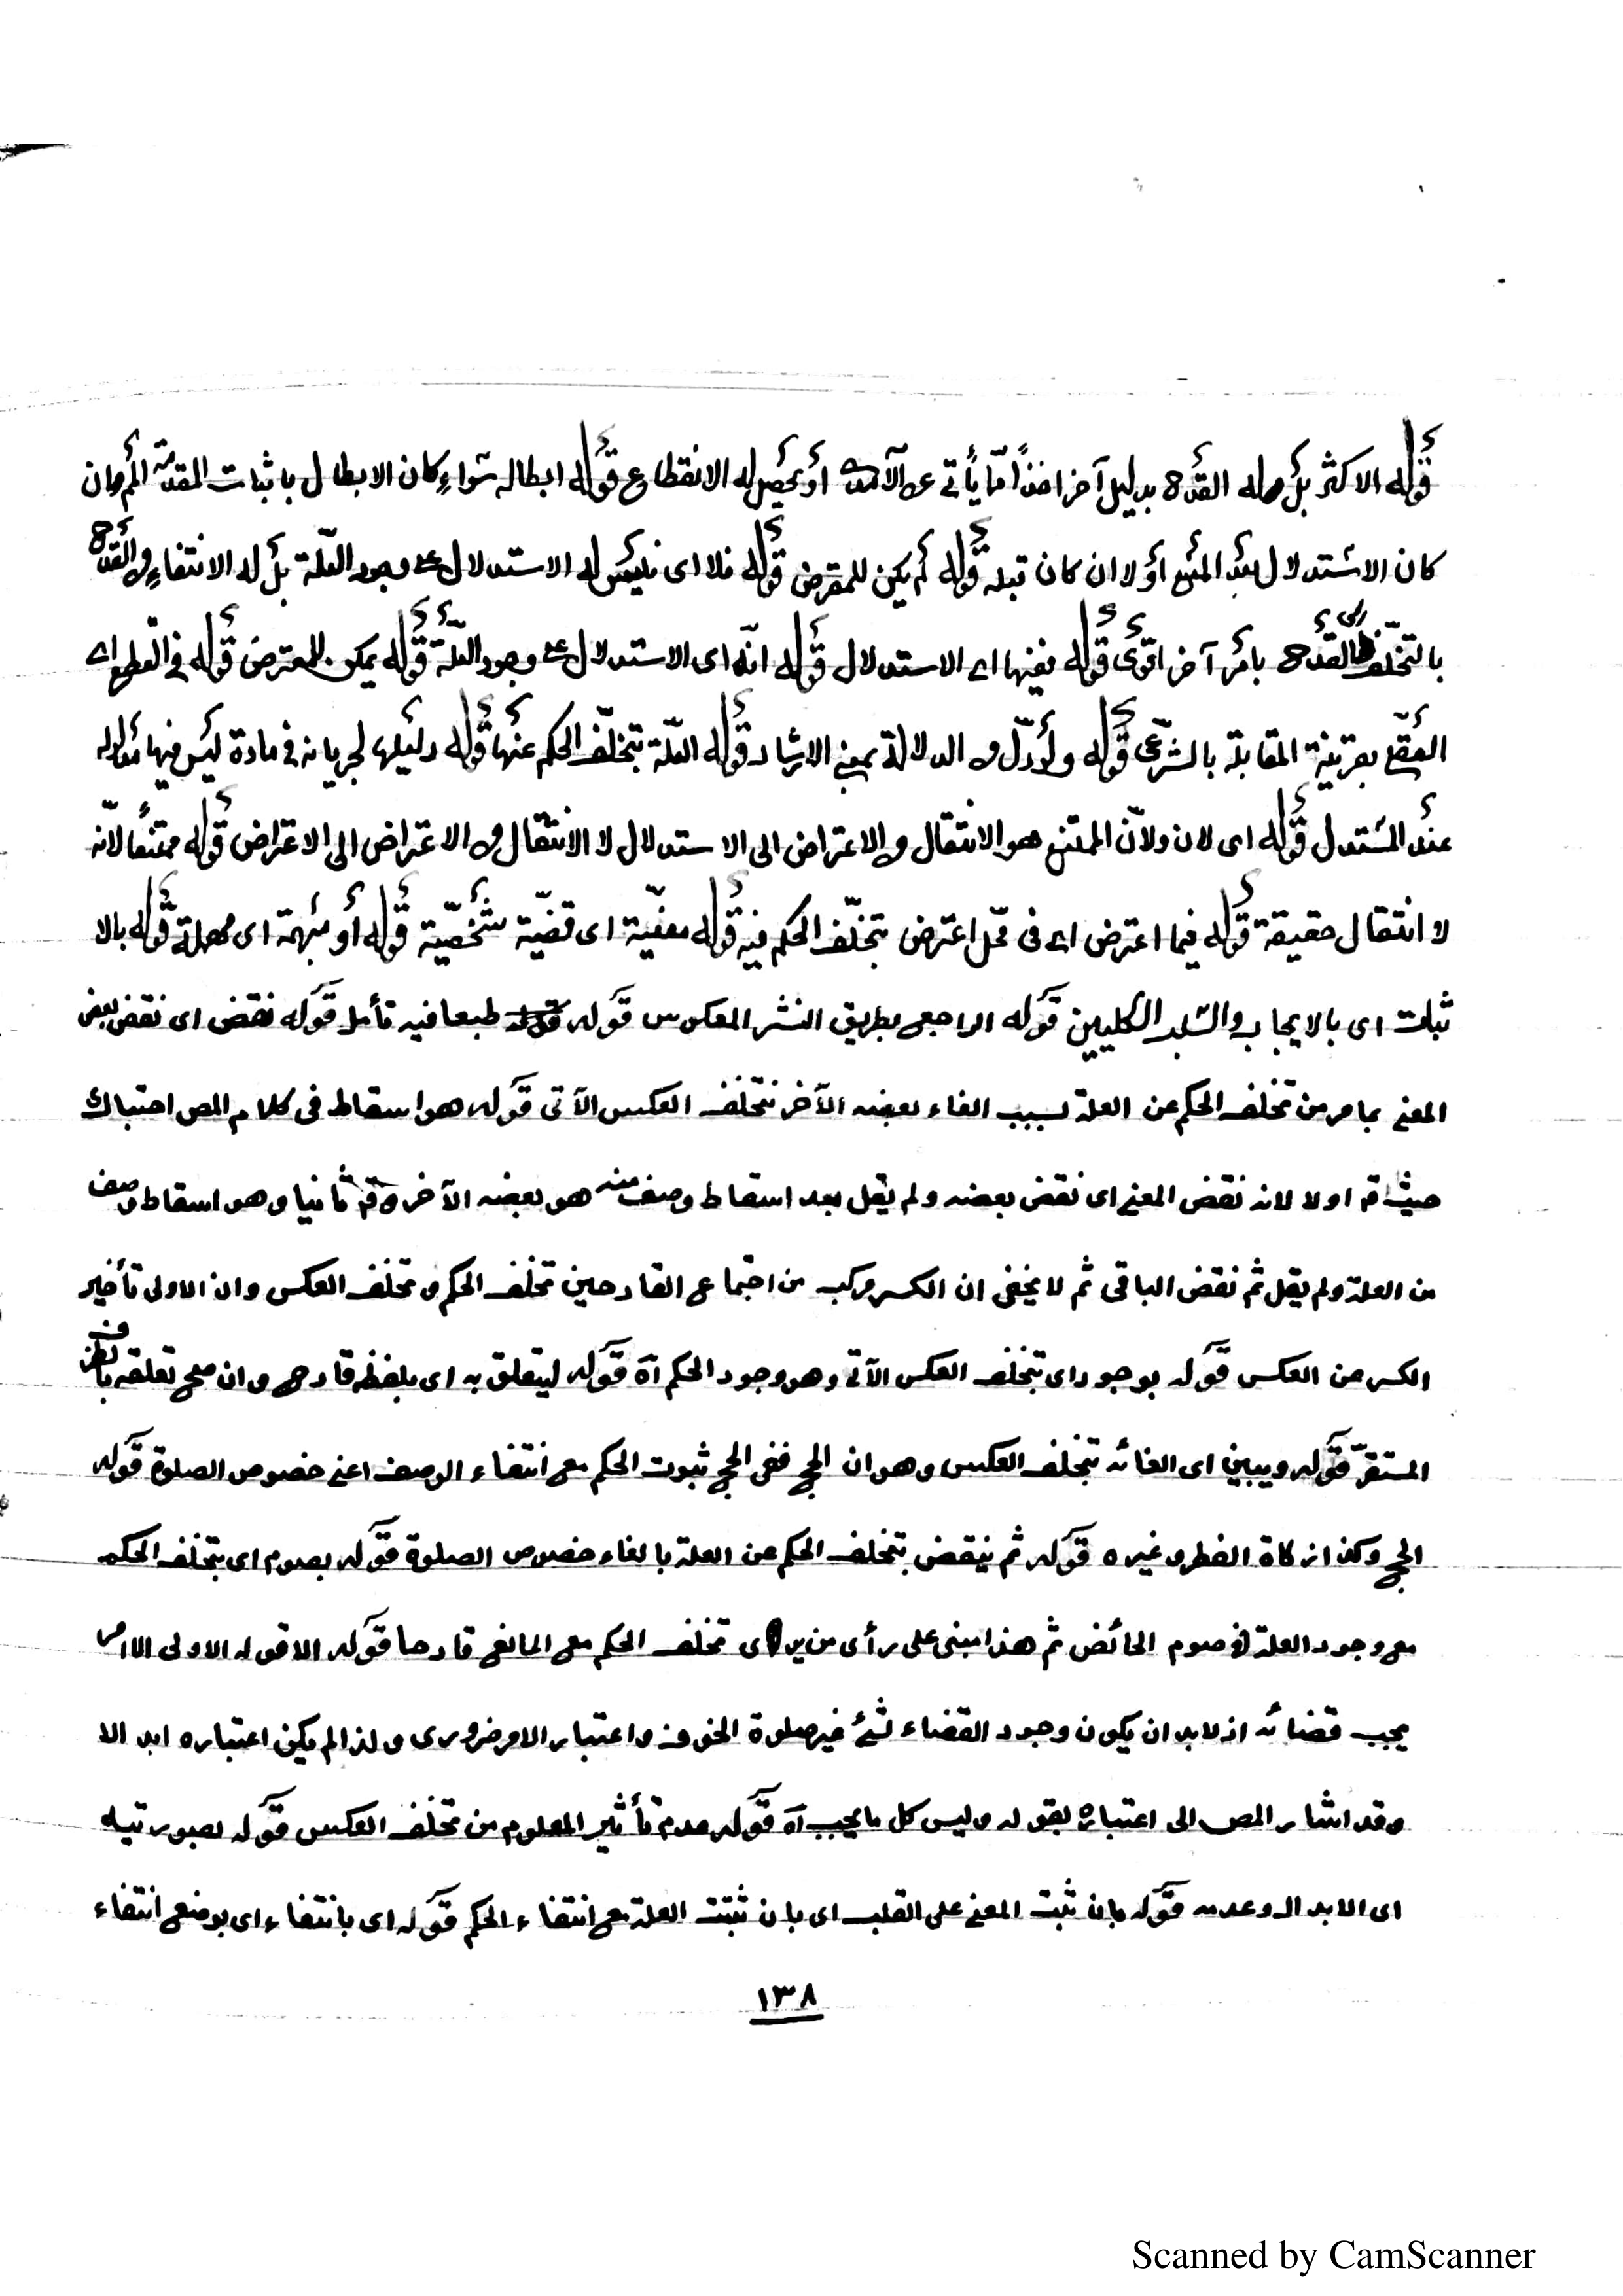 قوله الاكثر بل له القدح بدليل آخر اخذا مما يأتي عن الآمدى او يحصل له الانقطاع قوله ابطاله سواء كان الابطال باثبات المقدمة ام
كان الاستدلال بعد المنع او لا ان كان قبله قوله لم يكن للمعترض قوله فلا اى فليس له الاستدلال على وجود العلة بل له الانتفاء و القدح
بالتخلف القدح بامر آخر اقوى قوله بعينها اى الاستدلال قوله انه اى الاستدلال على وجود العلة قوله يمكن للمعترض قوله في القطع اى
العقلى بقرينة المقابلة بالشرعى قوله ولو دل من الدلالة بمعنى الارشاد قوله العلة بتخلف الحكم عنها قوله دليلها لجريانه فى مادة ليس فيها مدلوله
عند المستدل قوله اى لان ولان الممتنع هو الانتقال من الاعتراض الى الاستدلال لا الانتقال من الاعتراض الى الاعتراض قوله ممتنعا لانه
لا انتقال حقيقة قوله فيما اعترض اى فى محل اعترض بتخلف الحكم فيه قوله معينة اى قضية شخصية قوله أو مبهمة اى مهملة قوله بالا
ثبات اى بالايجاب والسلب الكليين قوله الراجع بطريق النشر المعكوس قوله طبعا فيه تأمل قوله نقض اى نقض بعض
المعنى بما مر من تخلف الحكم عن العلة بسبب الغاء بعضه الآخر بتخلف العكس الآتى قوله هو اسقاط فى كلام المص احتباك
حيث قم اولا لانه نقض المعنى اى نقض بعضه ولم يقل بعد اسقاط وصف منه هو بعضه الآخر وقم ثانيا وهو اسقاط وصف
من العلة ولم يقل ثم نقض الباقى ثم لا يخفى ان الكسر مركب من اجتماع القادحين تخلف الحكم و تخلف العكس وان الاولى تأخير
الكسر عن العكس قوله بوجود اى بتخلف العكس الآتى وهو وجود الحكم آه قوله ليتعلق به اى بلفظ قادح وان صح تعلقه بالظرف
المستقر قوله ويبين اى الغائه بتخلف العكس وهو ان الحج ففى الحج ثبوت الحكم مع انتفاء الوصف اعنى خصوص الصلوة قوله
الحج وكذا زكاة الفطر وغيره قوله ثم ينقض بتخلف الحكم عن العلة بالغاء خصوص الصلوة قوله بصوم اى بتخلف الحكم
مع وجود العلة فى صوم الحائض ثم هذا مبنى على رأى من يرى تخلف الحكم مع المانع قادحا قوله الا قوله الاولى الا امر
يجب قضائه اذ لابد ان يكون وجود القضاء لشئ غير صلوة الخوف واعتبار الامر ضرورى ولذا لم يكن اعتباره ابدالا
وقد اشار المص الى اعتباره بقوله وليس كل ما يجب آه قوله عدم تأثير المعلوم من تخلف العكس قوله بصورتيه
اى الابدال وعدمه قوله بان ثبت المعنى على القلب اى بان ثبتت العلة مع انتفاء الحكم قوله اى بانتفاء اى بوضع انتفاء
١٣٨
Scanned by CamScanner